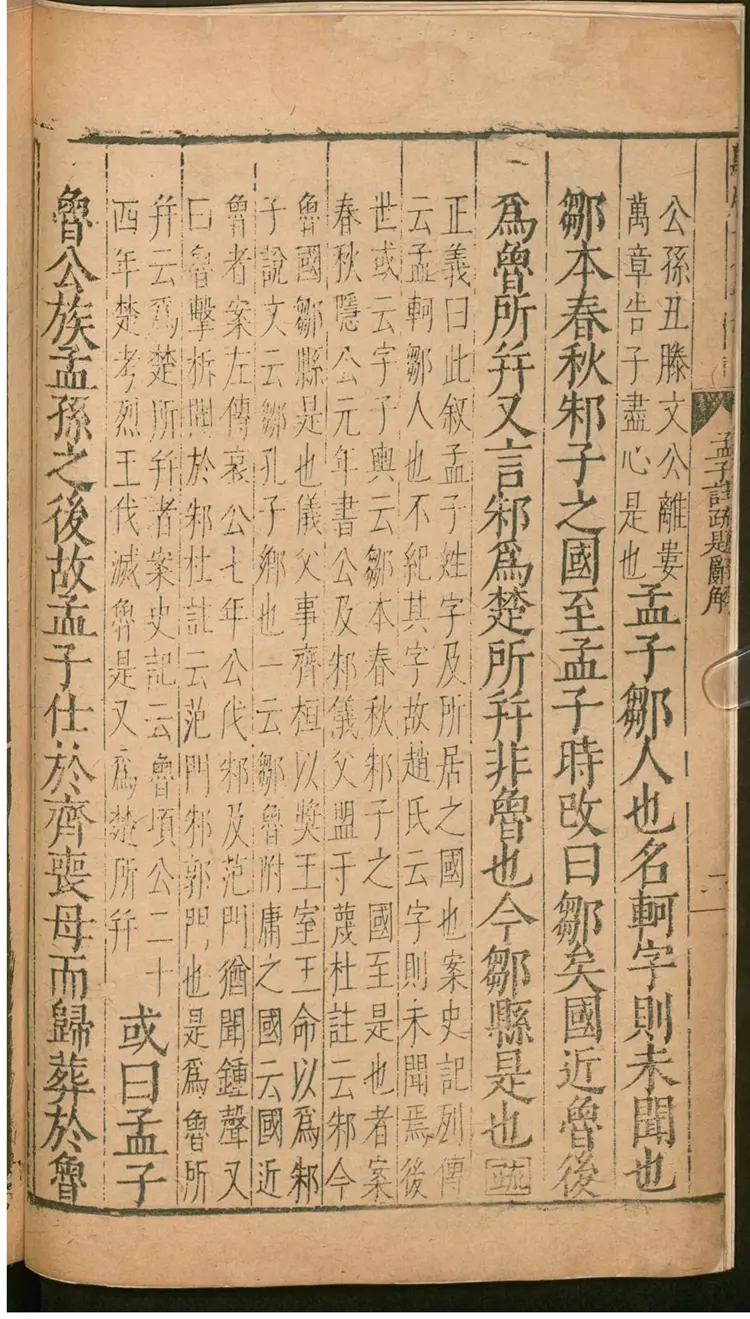 孟子註疏題辭解
二
公孫丑滕文公離婁
萬章告子盡心是也
孟子鄒人也名軻字則未聞也
鄒本春秋邾子之國至孟子時改曰鄒矣國近魯後
爲魯所幷又言邾爲楚所幷非魯也今鄒縣是也疏
正義曰此敘孟子姓字及所居之國也案史記列傳
云孟軻鄒人也不紀其字故趙氏云字則未聞焉後
世或云字子輿云鄒本春秋邾子之國至是也者案
春秋隱公元年書公及邾儀父盟于蔑杜註云邾今
魯國鄒縣是也儀父事齊桓以奬王室王命以爲邾
子說文云鄒孔子鄉也一云鄒魯附庸之國云國近
魯者案左傳哀公七年公伐邾及范門猶聞鍾聲又
曰魯擊柝聞於邾杜註云范門邾郭門也是爲魯所
幷云爲楚所幷者案史記云魯頃公二十
四年楚考烈王伐滅魯是又爲楚所幷
或曰孟子
魯公族孟孫之後故孟子仕於齊喪母而歸葬於魯